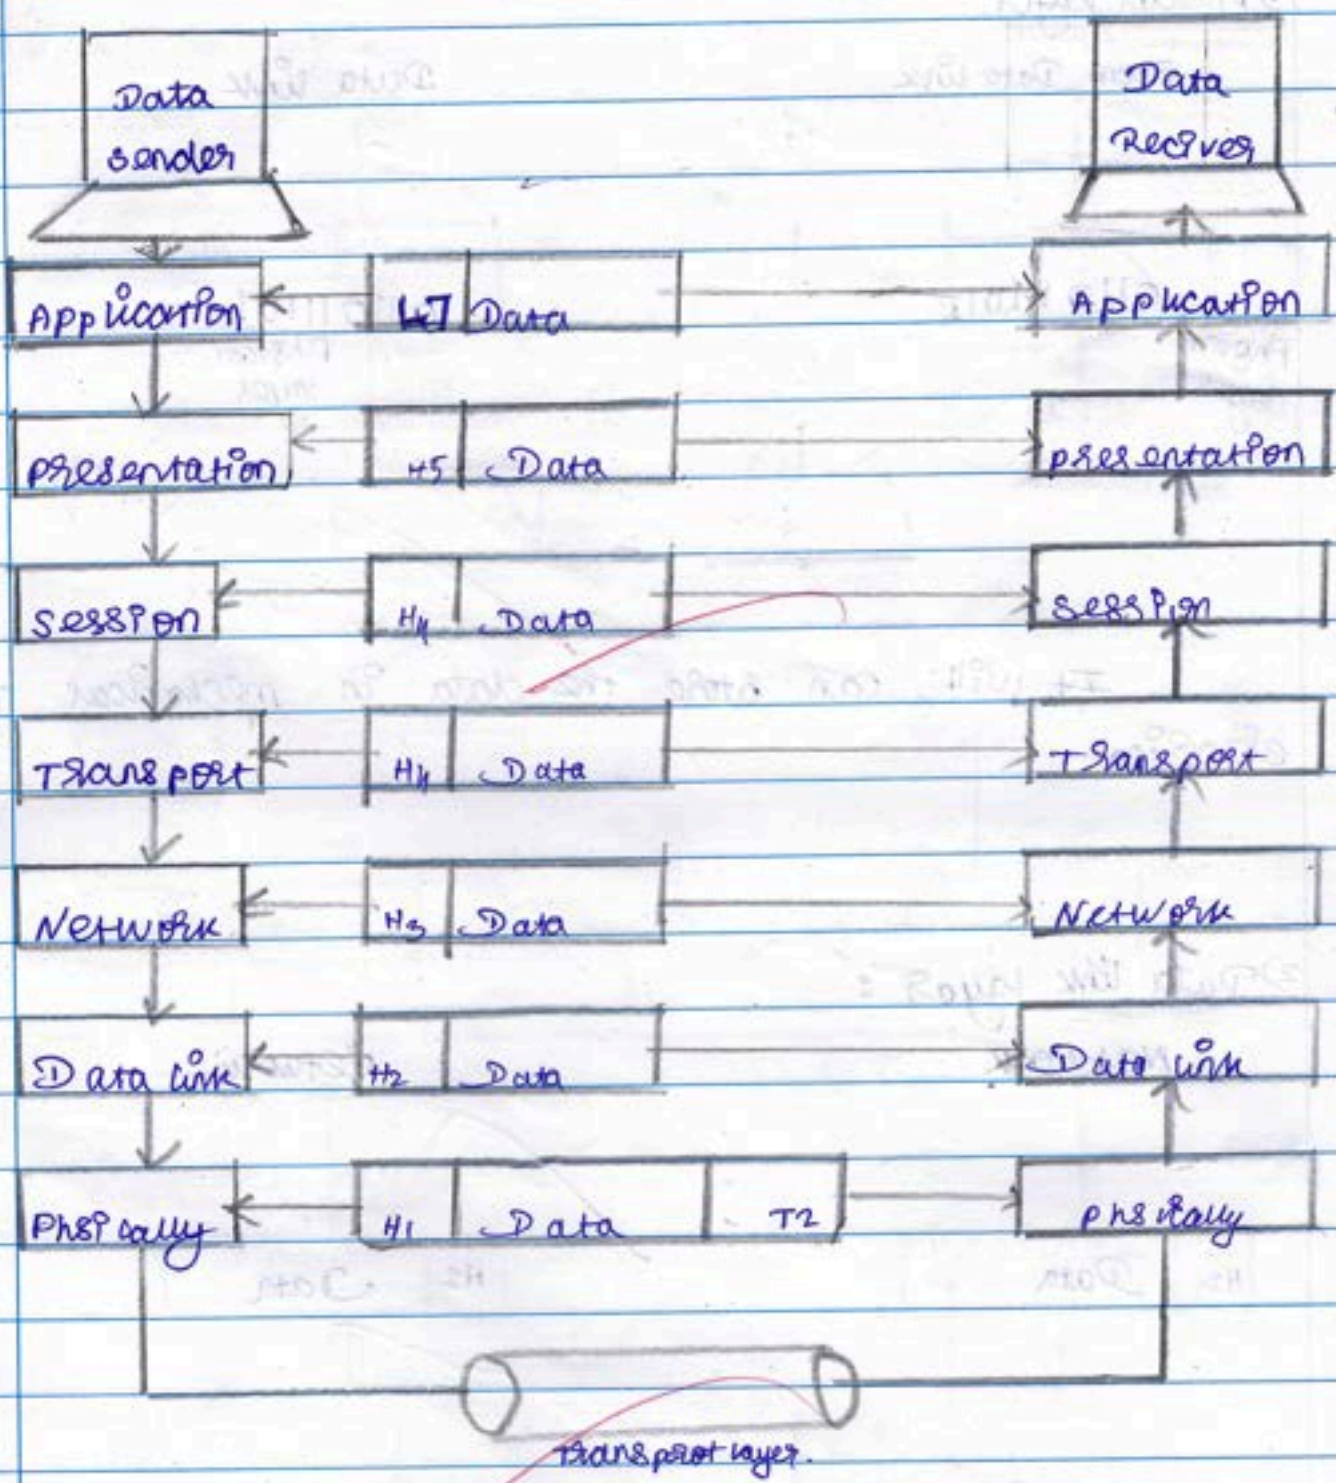 Data
sender
Data
Reciver
Application
H7 Data
Application
presentation
H5 Data
presentation
session
H4 Data
session
Transport
H4 Data
Transport
Network
H3 Data
Network
Data link
H2 Data
Data link
Phsically
H1 Data T2
phsically
Transprot layer.